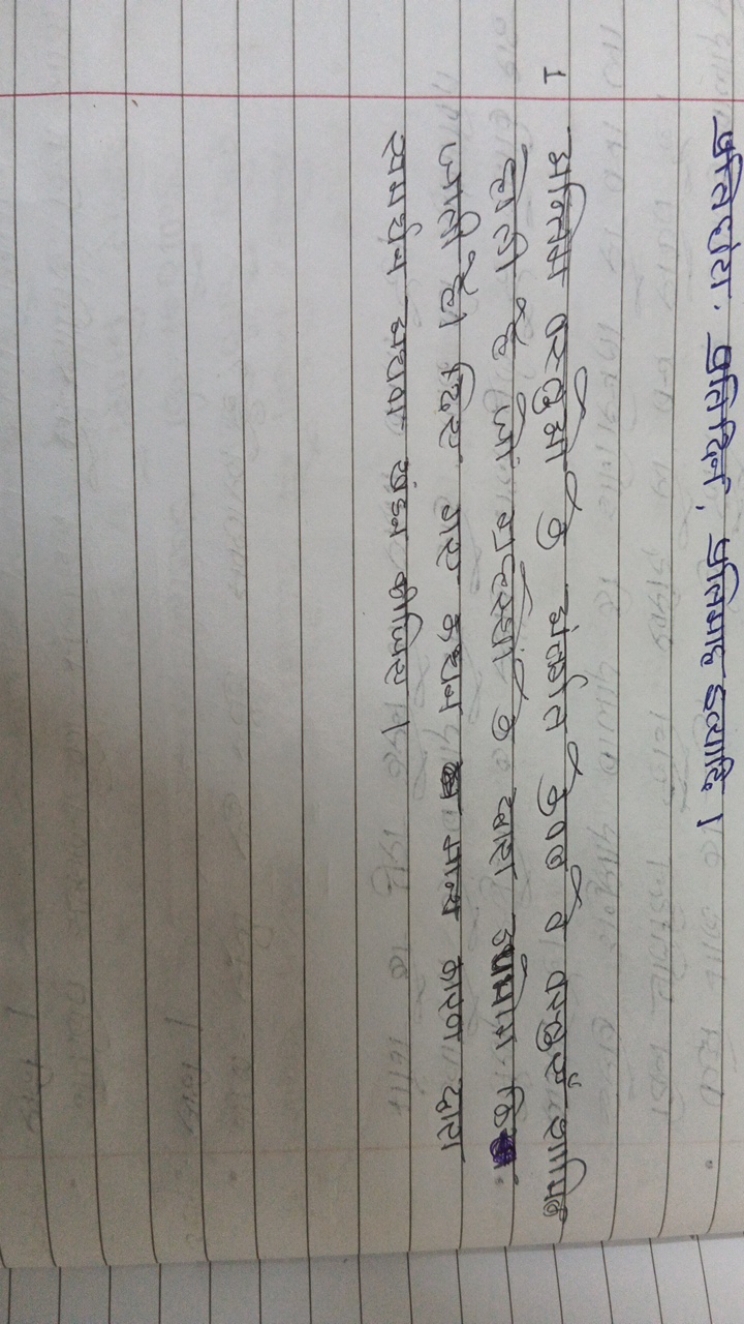 प्रतिघंटा, प्रतिदिन, प्रतिमाह इत्यादि।
1 अन्तिम वस्तुओं के अंतर्गत केवल वे वस्तुएँ शामिल
होती हैं जो गृहस्थों के द्वारा उपभोग कि
जाती हैं। दिए गए कथन मान्य कारण द्वारा
समर्थन अथवा खंडन कीजिए।